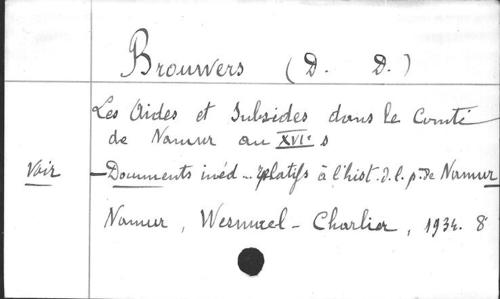 Brouwers (D. D.)
Les Aides et Subsides dans le Comté
de Namur au XVIe s
Voir — Documents inéd... relatifs à l'hist. d. l. p. de Namur
Namur, Wesmael-Charlier, 1934. 8°